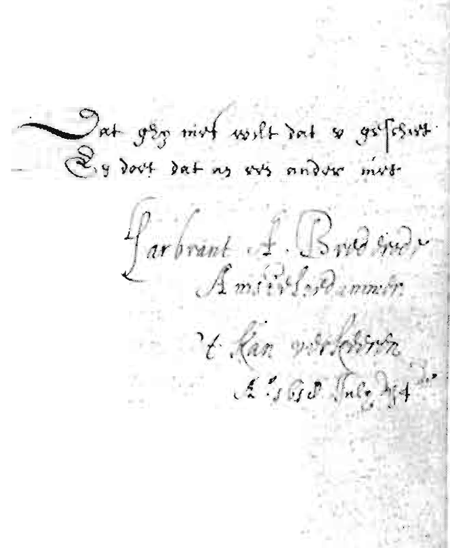 Dat ghy niet wilt dat v geschiet
En doet dat an een ander niet
Garbrant A. Brederode
Amstelredammer
't kan verkeeren
A.º 1618 July 14